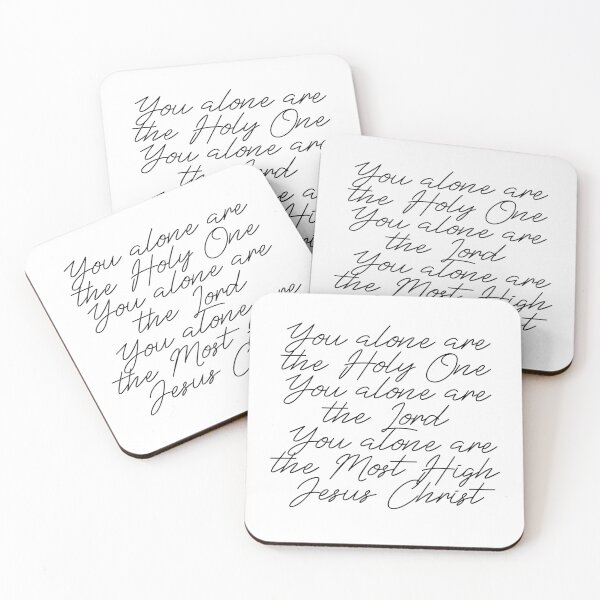 You alone are
the Holy One
You alone are
the Lord
You alone are
the Holy One
You alone are
the Lord
You alone are
the Most High
You alone are
the Holy One
You alone are
the Lord
You alone are
the Most
Jesus
You alone are
the Holy One
You alone are
the Lord
You alone are
the Most High
Jesus Christ